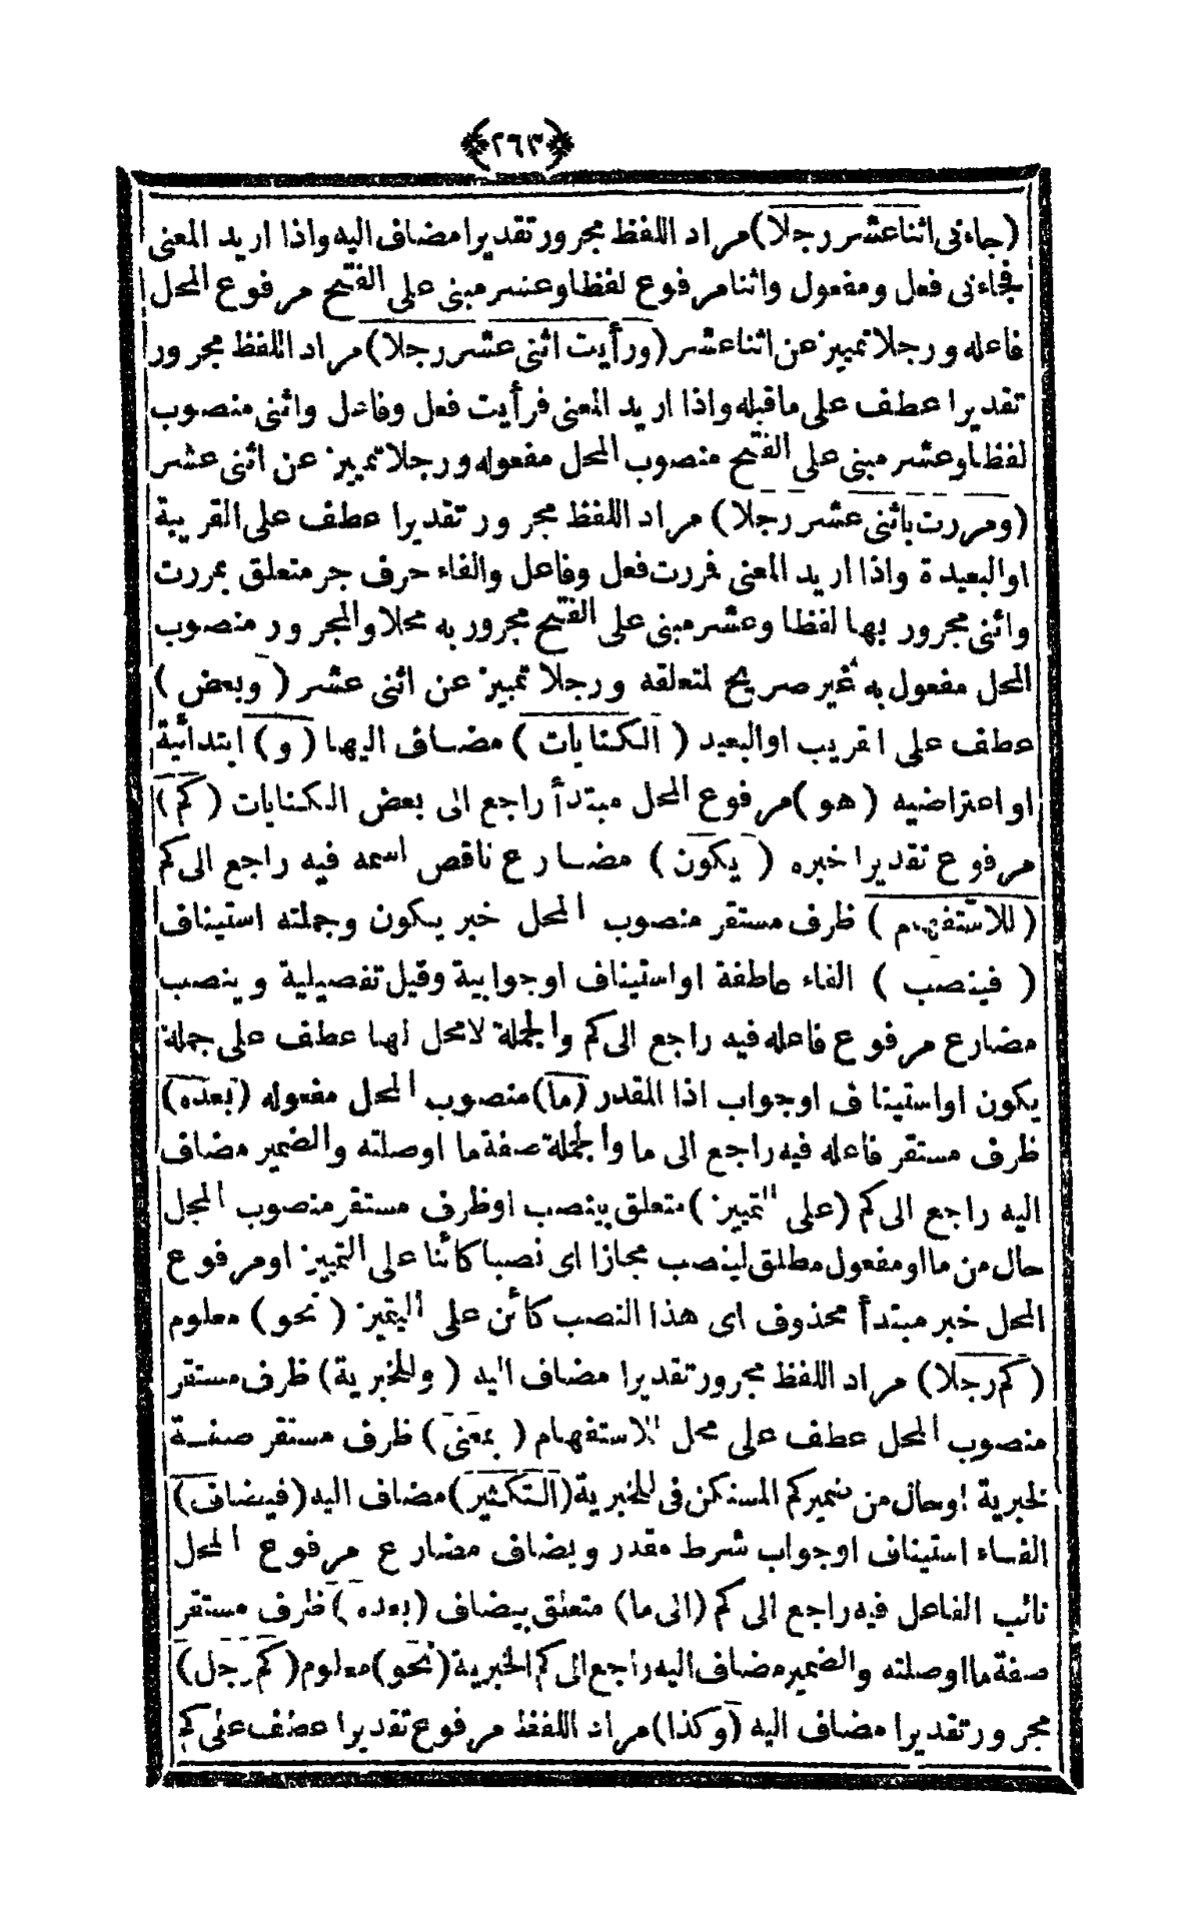 ﴿٢٦٣﴾
(جاءنى اثنا عشر رجلا) مراد اللفظ مجرور تقديرا مضاف اليه واذا اريد المعنى
فجاءنى فعل ومفعول واثنا مرفوع لفظا وعشر مبنى على الفتح مرفوع المحل
فاعله ورجلا تمييز عن اثنا عشر (ورأيت اثنى عشر رجلا) مراد اللفظ مجرور
تقديرا عطف على ما قبله واذا اريد المعنى فرأيت فعل وفاعل واثنى منصوب
لفظا وعشر مبنى على الفتح منصوب المحل مفعوله ورجلا تمييز عن اثنى عشر
(ومررت باثنى عشر رجلا) مراد اللفظ مجرور تقديرا عطف على القريبة
او البعيدة واذا اريد المعنى فمررت فعل وفاعل والفاء حرف جر متعلق بمررت
واثنى مجرور بها لفظا وعشر مبنى على الفتح مجرور به محلا والمجرور منصوب
المحل مفعول به غير صريح لمتعلقه ورجلا تمييز عن اثنى عشر (وبعض)
عطف على ا قريب او البعيد (الكنايات) مضاف اليها (و) ابتدائية
او اعتراضيه (هو) مرفوع المحل مبتدأ راجع الى بعض الكنايات (كم)
مرفوع تقديرا خبره (يكون) مضارع ناقص اسمه فيه راجع الى كم
(للاستفهام) ظرف مستقر منصوب المحل خبر يكون وجملته استيناف
(فينصب) الفاء عاطفة او استيناف او جوابية وقيل تفصيلية وينصب
مضارع مرفوع فاعله فيه راجع الى كم والجملة لا محل لها عطف على جملة
يكون او استيناف او جواب اذا المقدر (ما) منصوب المحل مفعوله (بعده)
ظرف مستقر فاعله فيه راجع الى ما والجملة صفة ما او صلته والضمير مضاف
اليه راجع الى كم (على التمييز) متعلق بينصب او ظرف مستقر منصوب المحل
حال من ما او مفعول مطلق لينصب مجازا اى نصبا كائنا على التمييز او مرفوع
المحل خبر مبتدأ محذوف اى هذا النصب كائن على اليتميز (نحو) معلوم
(كم رجلا) مراد اللفظ مجرور تقديرا مضاف اليه (وللخبرية) ظرف مستقر
منصوب المحل عطف على محل للاستفهام (بمعنى) ظرف مستقر صفة
لخبرية او حال من ضمير كم المستكن فى للخبرية (التكثير) مضاف اليه (فيضاف)
الفاء استيناف او جواب شرط مقدر ويضاف مضارع مرفوع المحل
نائب الفاعل فيه راجع الى كم (الى ما) متعلق بيضاف (بعده) ظرف مستقر
صفة ما او صلته والضمير مضاف اليه راجع الى كم الخبرية (نحو) معلوم (كم رجل)
مجرور تقديرا مضاف اليه (وكذا) مراد اللفظ مرفوع تقديرا عطف على كم